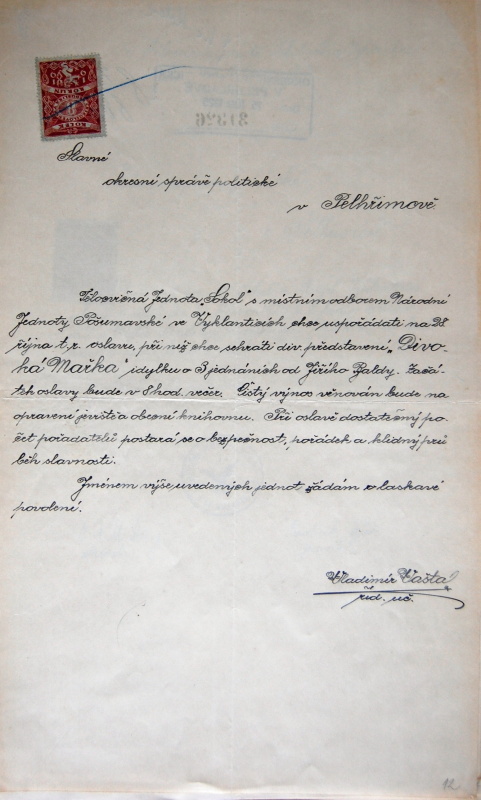 Slavné
okresní správě politické
v Pelhřimově.
Tělocvičná Jednota „Sokol" s místním odborem Národní
Jednoty Pošumavské ve Vyklanticích chce uspořádati na 28
října t. r. oslavu, při níž chce sehráti div. představení „Divo-
ká Mařka" idylku o 3 jednáních od Jiřího Baldy. Začá-
tek oslavy bude v 8 hod. večer. Čistý výnos věnován bude na
opravení jeviště a obecní knihovnu. Při oslavě dostatečný po-
čet pořadatelů postará se o bezpečnost, pořádek a klidný prů
běh slavnosti.
Jménem výše uvedených jednot žádám o laskavé
povolení.
Vladimír Vašta
říd. uč.
12